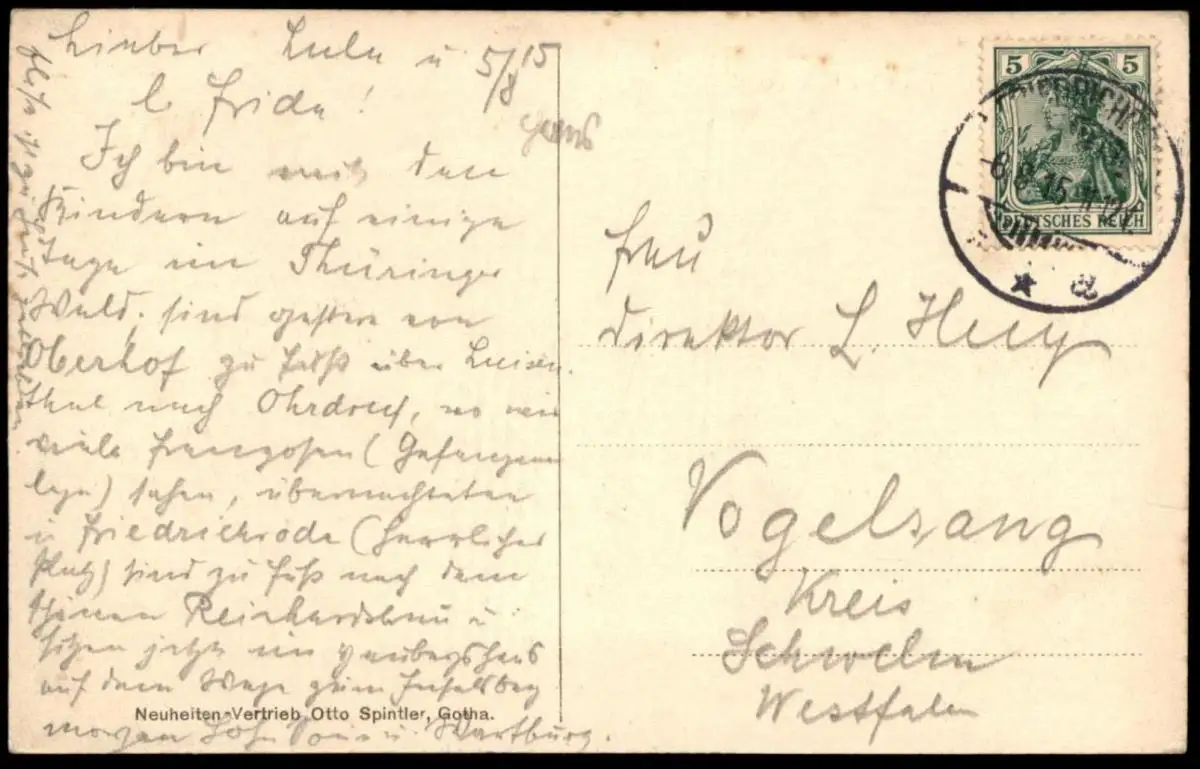 Lieber Lulu u 5/8 15
l. Frida!
Ich bin mit den
Kindern auf einige
Tage im Thüringer
Wald, sind gestern von
Oberhof zu Fuß über Luisen-
thal nach Ohrdruf, wo wir
viele Franzosen (Gefangenen
lager) sahen, übernachteten
in Friedrichroda (herrlicher
Platz) sind zu Fuß nach dem
schönen Reinhardsbrunn u
sitzen jetzt im
auf dem Wege zum Inselsberg
morgen u. Wartburg.
Neuheiten-Vertrieb Otto Spintler, Gotha.
5 5
DEUTSCHES REICH
FRIEDRICH
-8.8.15.11-12
* a
Frau
Direktor L. Huy
Vogelsang
Kreis
Schwelm
Westfalen